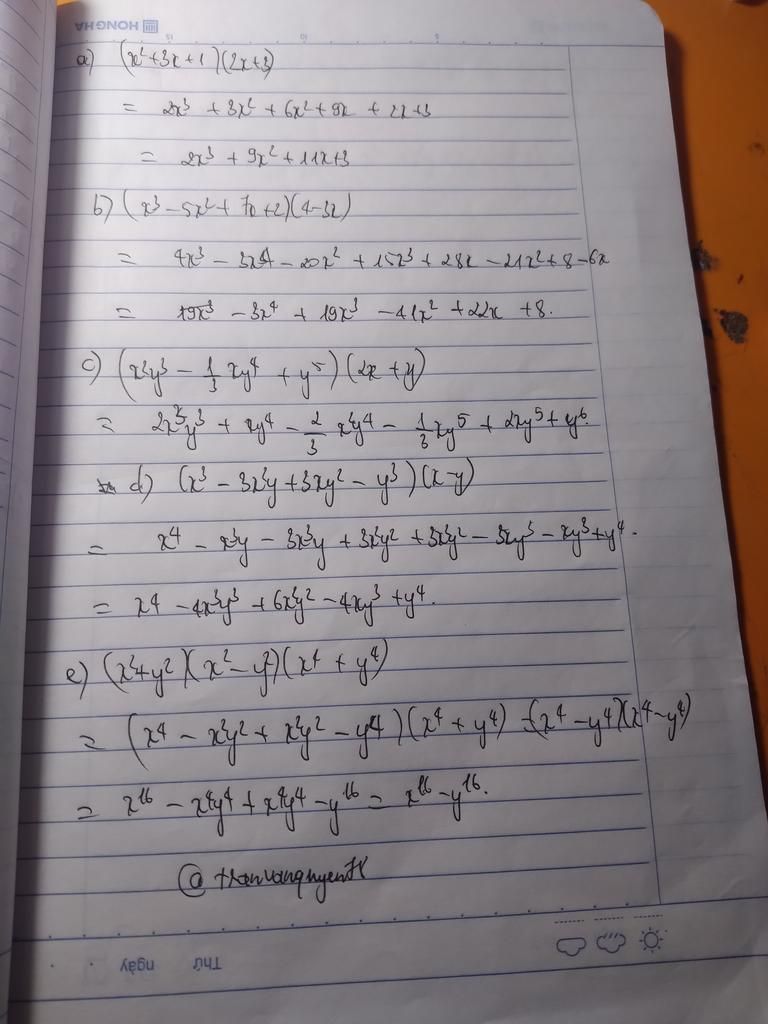 HONG HA
15 10 5
a) (x²+3x+1)(2x+3)
= 2x³ + 3x² + 6x² + 9x + 2x+3
= 2x³ + 9x² + 11x+3
b) (x³ - 5x² + 7x +2)(4-3x)
= 4x³ - 3x4 - 20x² + 15x³ + 28x - 21x² + 8 - 6x
= 19x³ - 3x⁴ + 19x³ - 41x² + 22x + 8.
c) (x²y³ - 1/3 xy⁴ + y⁵)(2x + y)
= 2x³y³ + xy⁴ - 2/3 x²y⁴ - 1/3 xy⁵ + 2xy⁵ + y⁶
d) (x³ - 3x²y + 3xy² - y³)(x-y)
= x⁴ - x³y - 3x³y + 3x²y² + 3x²y² - 3xy³ - xy³ + y⁴.
= x⁴ - 4x³y³ + 6x²y² - 4xy³ + y⁴.
e) (x²+y²)(x² - y²)(x⁴ + y⁴)
= (x⁴ - x²y² + x²y² - y⁴)(x⁴ + y⁴) = (x⁴ - y⁴)(x⁴ - y⁴)
= x¹⁶ - x⁴y⁴ + x⁴y⁴ - y¹⁶ = x¹⁶ - y¹⁶.
Thứ ngày